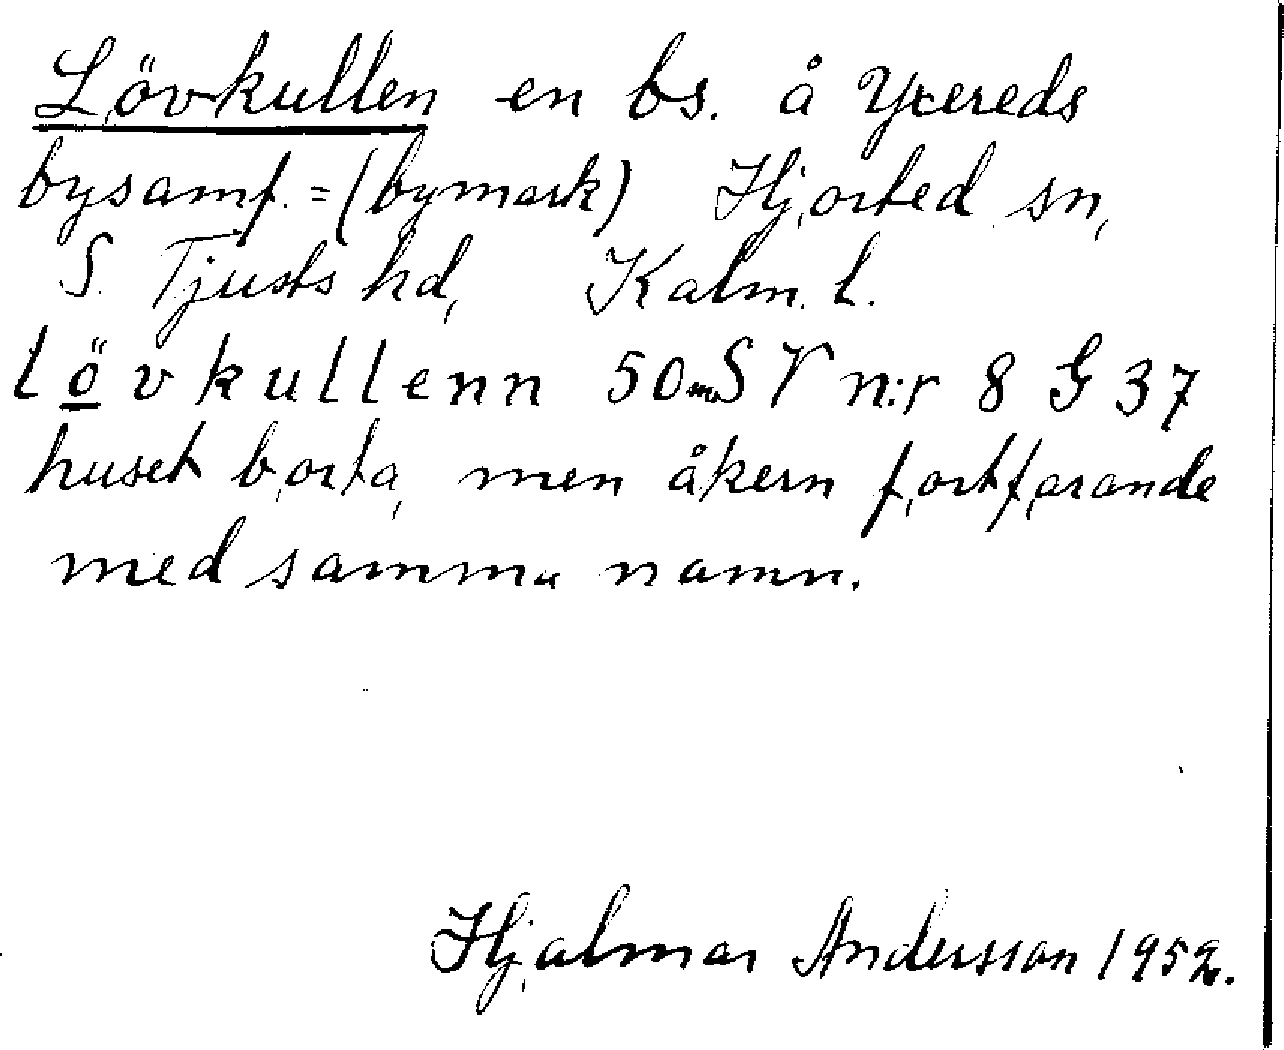 Lövkullen en bs. å Yxereds
bysamf. = (bymark) Hjorted sn,
S. Tjusts hd, Kalm. l.
lövkullenn 50m SV n:r 8 G 37
huset borta, men åkern fortfarande
med samma namn.
Hjalmar Andersson 1952.